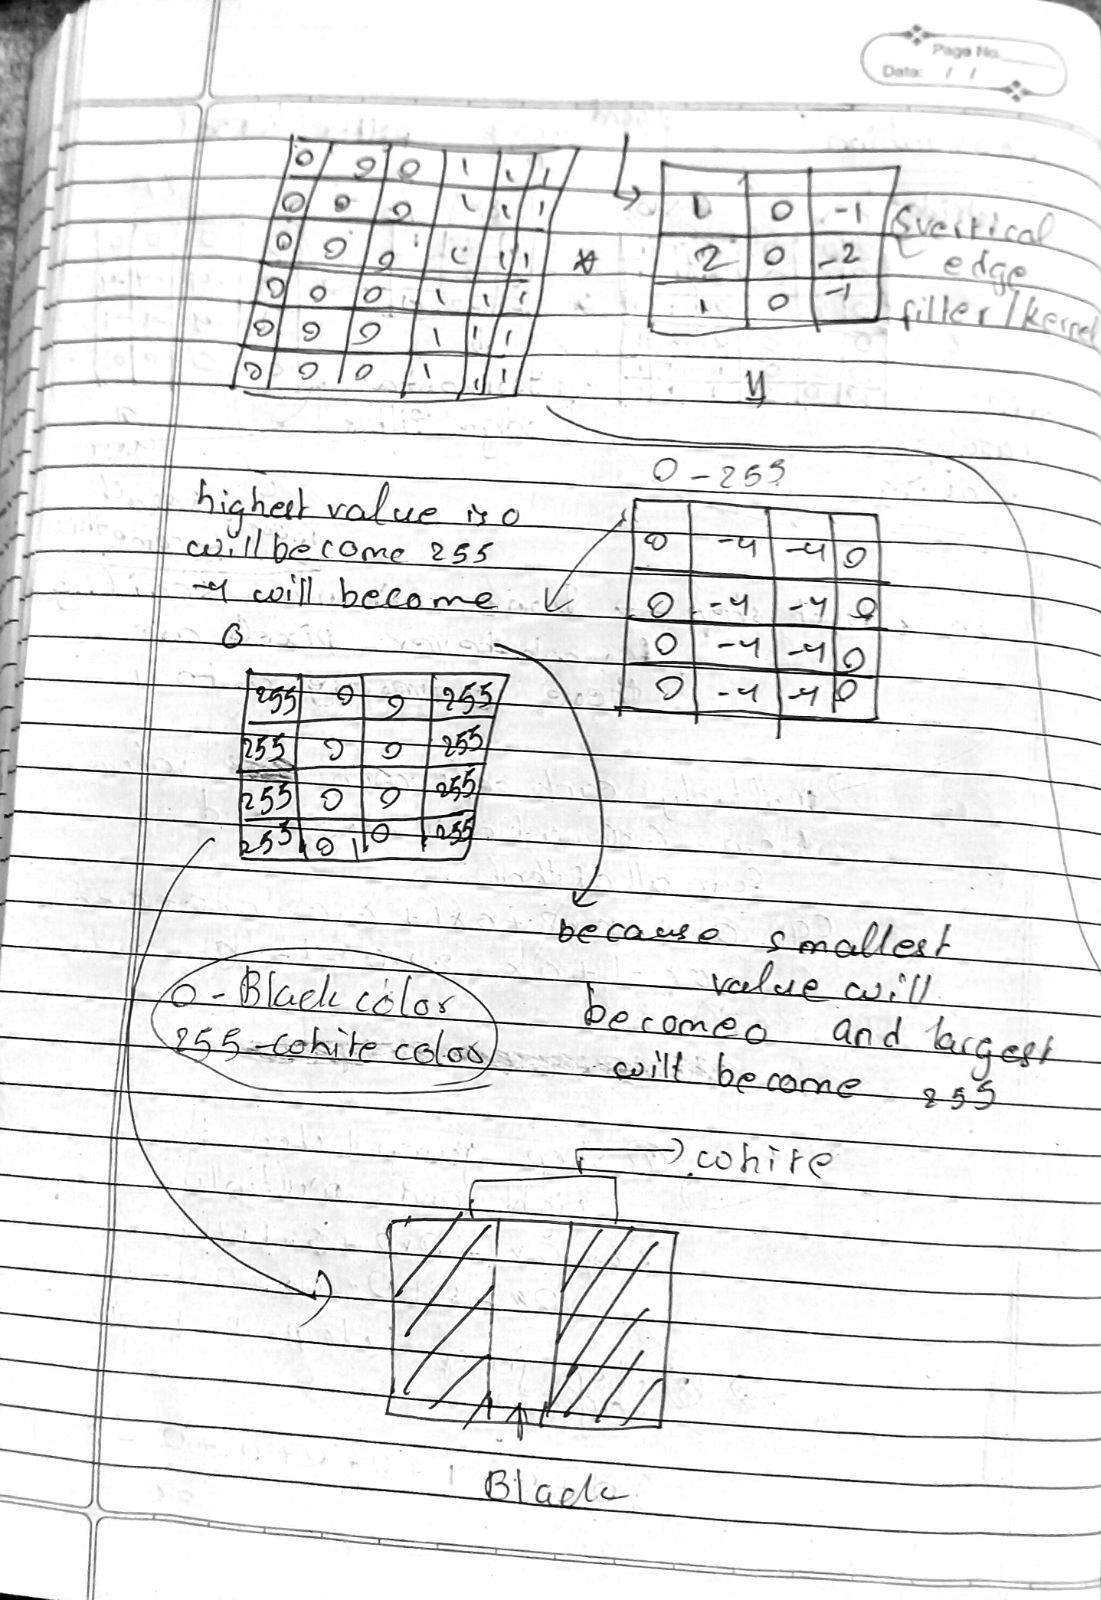 Page No.
Date: / /
0 0 0 1 1 1
0 0 0 1 1 1
0 0 0 1 1 1
0 0 0 1 1 1
0 0 0 1 1 1
0 0 0 1 1 1
*
1 0 -1
2 0 -2
1 0 -1
vertical
edge
filter/kernel
0 - 255
0 -4 -4 0
0 -4 -4 0
0 -4 -4 0
0 -4 -4 0
highest value is 0
will become 255
-4 will become
0
255 0 0 255
255 0 0 255
255 0 0 255
255 0 0 255
because smallest
value will
become 0 and largest
will become 255
0 - Black color
255 - white color
white
Black